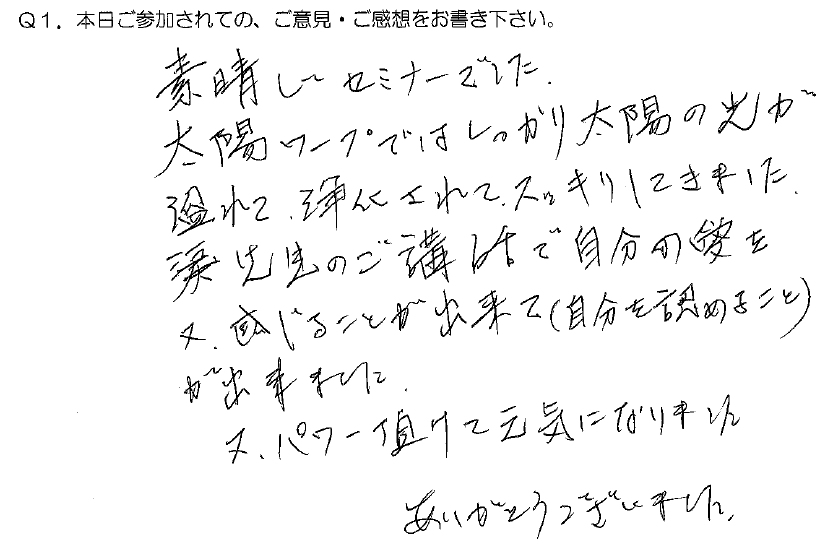 Ｑ１．本日ご参加されての、ご意見・ご感想をお書き下さい。
素晴しいセミナーでした.
太陽ワークではしっかり太陽の光が
溢れて.浄化されて.スッキリしてきました.
先生のご講話で自分の愛を
又.感じることが出来て(自分を認めること)
が出来ました.
又.パワー頂けて元気になりました
ありがとうございました.